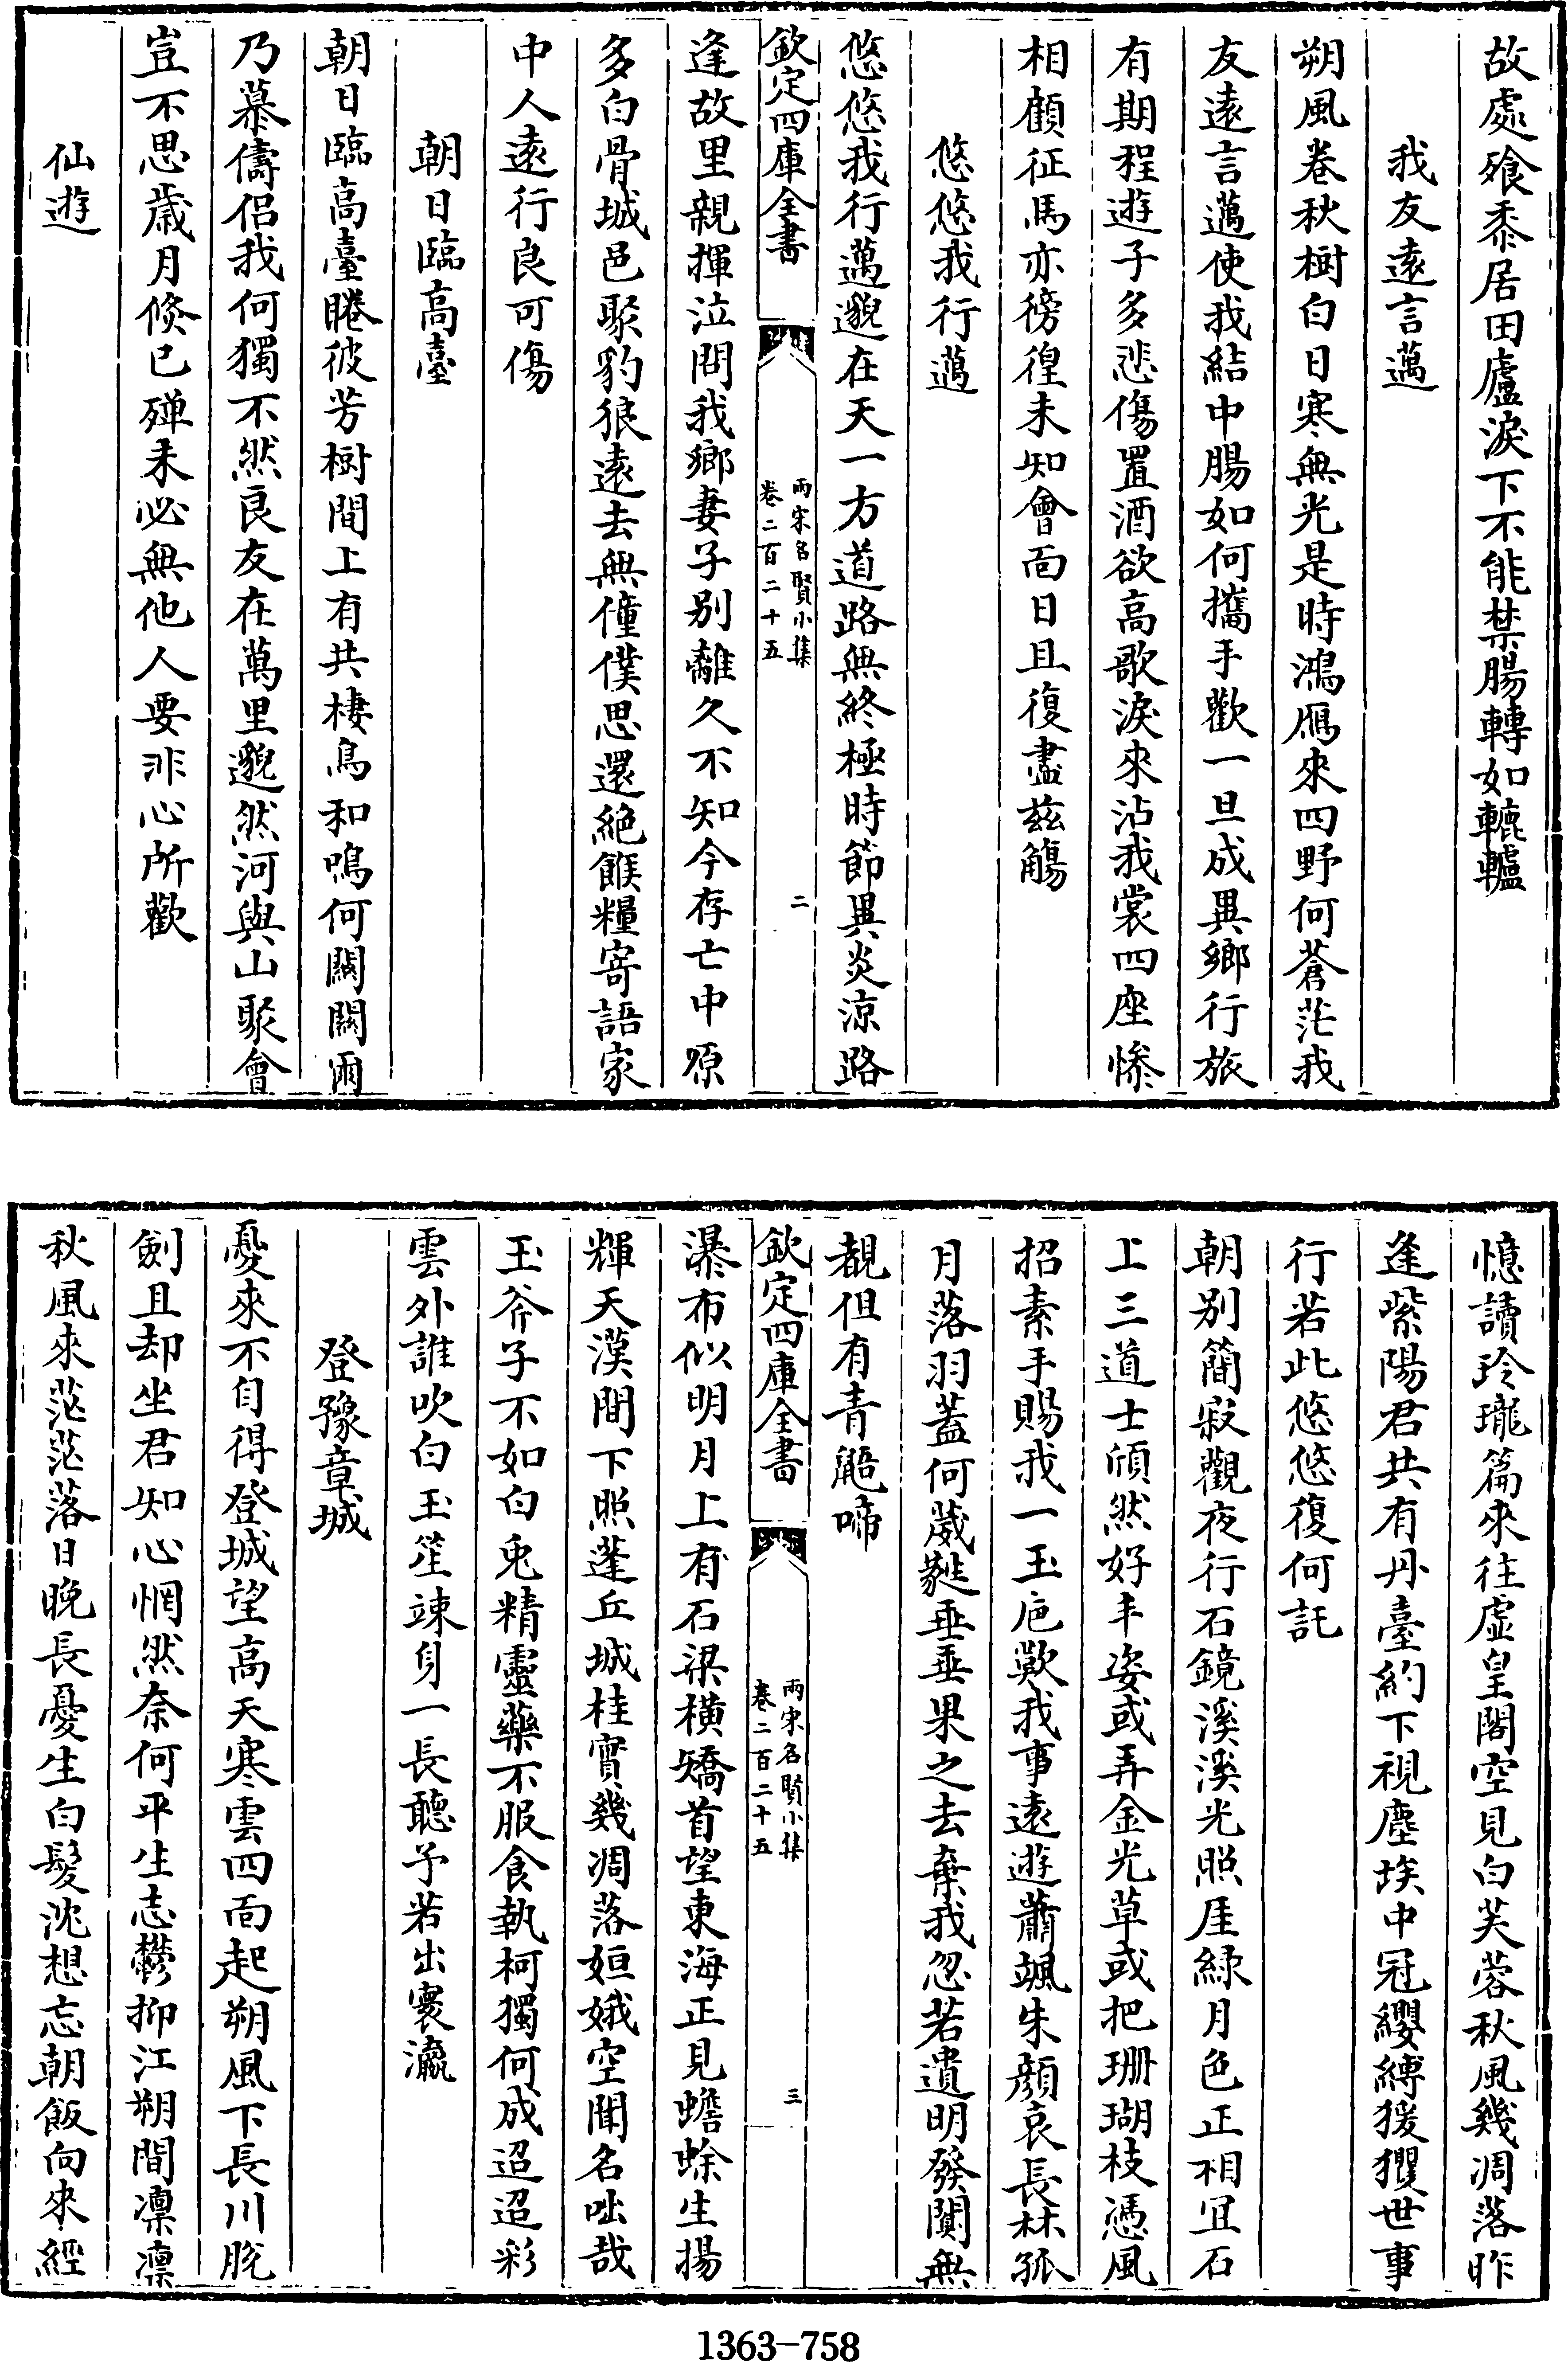 故處飧黍居田廬淚下不能禁腸轉如轆轤
我友遠言邁
朔風卷秋樹白日寒無光是時鴻鴈來四野何蒼茫我
友遠言邁使我結中腸如何攜手歡一旦成異鄉行旅
有期程遊子多悲傷置酒欲高歌淚來沾我裳四座慘
相顧征馬亦徬徨未知會面日且復盡兹觴
悠悠我行邁
悠悠我行邁邈在天一方道路無終極時節異炎涼路
欽定四庫全書
兩宋名賢小集
卷二百二十五
二
逢故里親揮泣問我鄉妻子別離久不知今存亡中原
多白骨城邑聚豹狼遠去無僮僕思還絶餱糧寄語家
中人遠行良可傷
朝日臨高臺
朝日臨高臺睠彼芳樹間上有共棲鳥和鳴何關關爾
乃慕儔侣我何獨不然良友在萬里邈然河與山聚會
豈不思歲月倐已殫未必無他人要非心所歡
仙遊
憶讀玲瓏篇來往虚皇閣空見白芙蓉秋風幾凋落昨
逢紫陽君共有丹臺約下視塵埃中冠纓縛猨玃世事
行若此悠悠復何託
朝别簡寂觀夜行石鏡溪溪光照厓緑月色正相宜石
上三道士頎然好丰姿或弄金光草或把珊瑚枝憑風
招素手賜我一玉巵歎我事遠遊蕭颯朱顔哀長林孤
月落羽蓋何葳蕤垂垂果之去棄我忽若遺明發闃無
覩但有青鼯啼
欽定四庫全書
兩宋名賢小集
卷二百二十五
三
瀑布似明月上有石梁橫矯首望東海正見蟾蜍生揚
輝天漢間下照蓬丘城桂實幾凋落姮娥空聞名咄哉
玉斧子不如白兎精靈藥不服食執柯獨何成迢迢彩
雲外誰吹白玉笙竦身一長聽予若出寰瀛
登豫章城
憂來不自得登城望高天寒雲四面起朔風下長川脱
劍且却坐君知心惘然奈何平生志鬱抑江朔間凛凛
秋風來茫茫落日晚長憂生白髮沈想忘朝飯向來經
1363-758